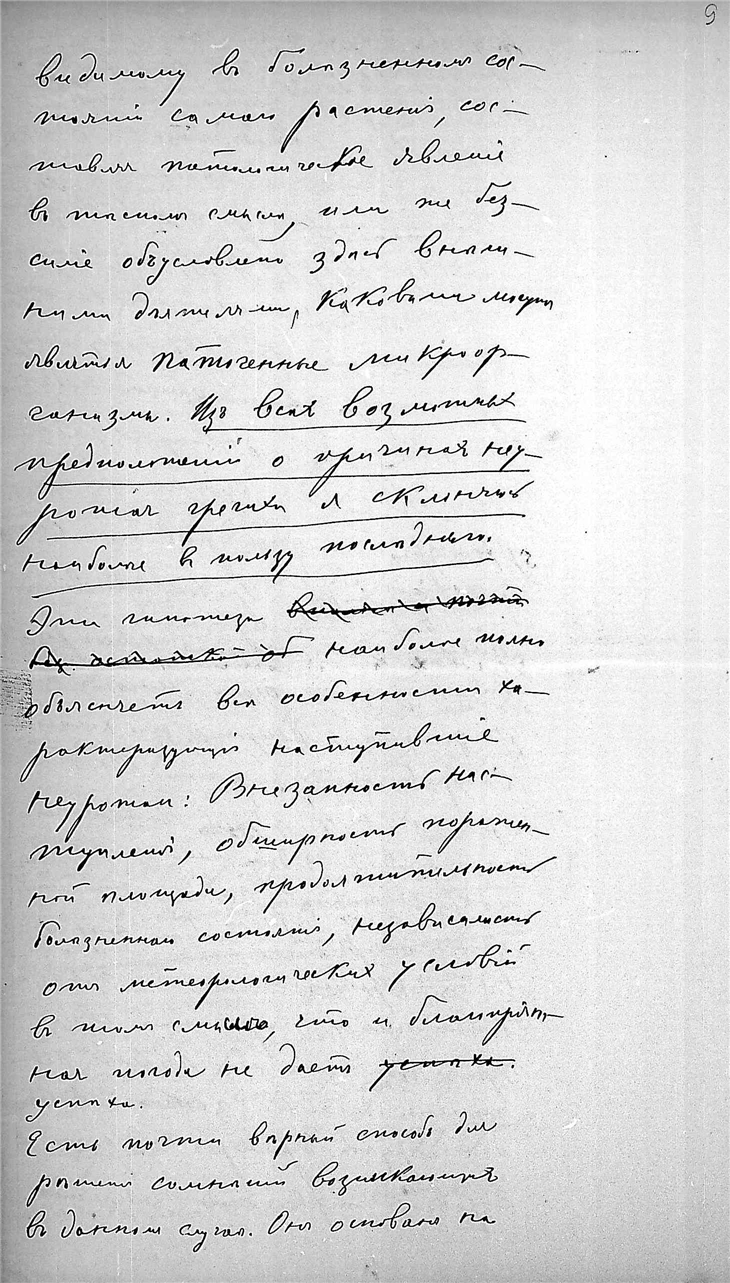 9
видимому въ болѣзненномъ сос-
тоянiи самого растенiя, сос-
товляя патологическое явленiе
въ тѣсномъ смыслѣ, или же без-
силiе обусловлено здѣсь внѣш-
ними дѣятелями, каковыми могутъ
явиться патогенные микроор-
ганизмы. Изъ всѣхъ возможныхъ
предположенiй о причинахъ неу-
рожая гречихи я склоняюсь
наиболѣе въ пользу послѣдняго.
Эта гипотеза
наиболѣе полно
объясняетъ всѣ особенности ха-
рактеризующiя наступившiе
неурожаи: Внезапность нас-
тупленiя, обширность поражен-
ной площади, продолжительность
болѣзненнаго состоянiя, независимость
отъ метеорологическихъ условiй
въ томъ смыслѣ, что и благопрiят-
ная погода не даетъ успѣха.
успѣха.
Есть почти вѣрный способъ для
рѣшенiя сомнѣнiй возникающихъ
въ данномъ случаѣ. Онъ основанъ на